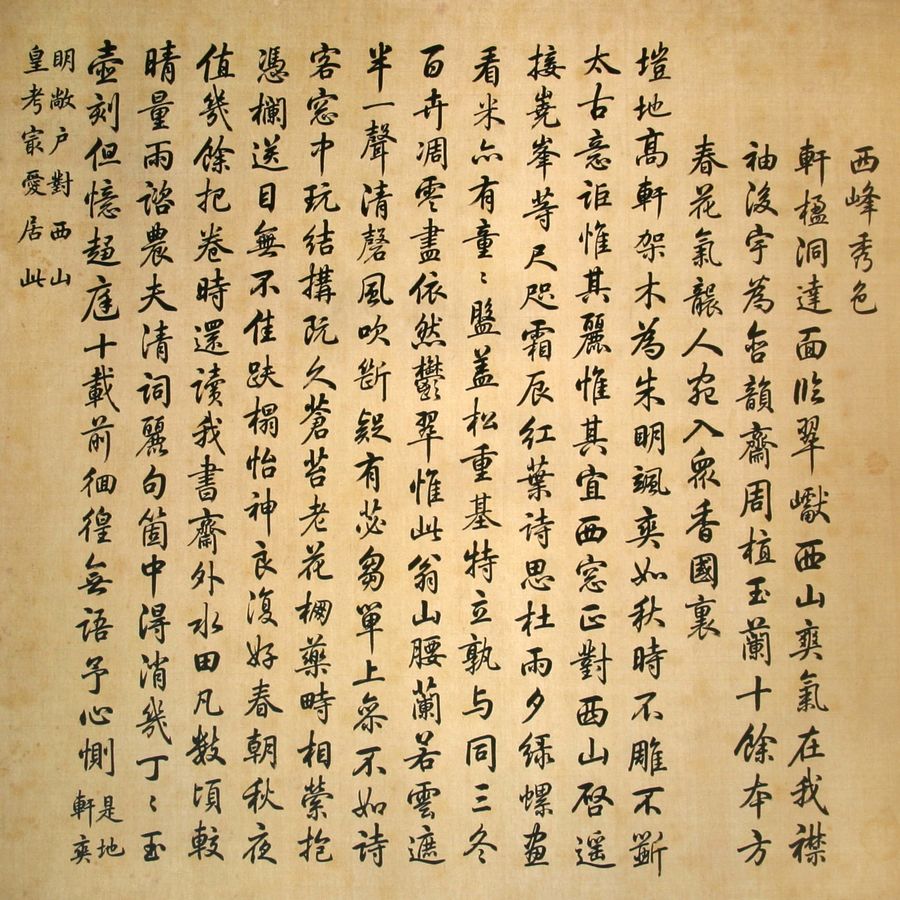 西峰秀色
軒楹洞達面臨翠巘西山爽氣在我襟
袖後宇為含韻齋周植玉蘭十餘本方
春花氣襲人宛入眾香國裏
塏地高軒架木為朱明颯爽如秋時不雕不斲
太古意詎惟其麗惟其宜西窓正對西山啓遥
接嶤峯等尺咫霜辰紅葉詩思杜雨夕綠螺畫
看米亦有童〻盤盖松重基特立孰与同三冬
百卉凋零盡依然鬱翠惟此翁山腰蘭若雲遮
半一聲清磬風吹斷疑有苾芻單上參不如詩
客窓中玩結搆既久蒼苔老花欄藥畤相縈抱
憑欄送目無不佳趺榻怡神良復好春朝秋夜
值幾餘把卷時還讀我書齋外水田凡數頃較
晴量雨諮農夫清詞麗句箇中得消幾丁〻玉
壺刻但憶趨庭十載前徊徨無語予心惻是地軒爽
明敞户對西山
皇考㝡愛居此